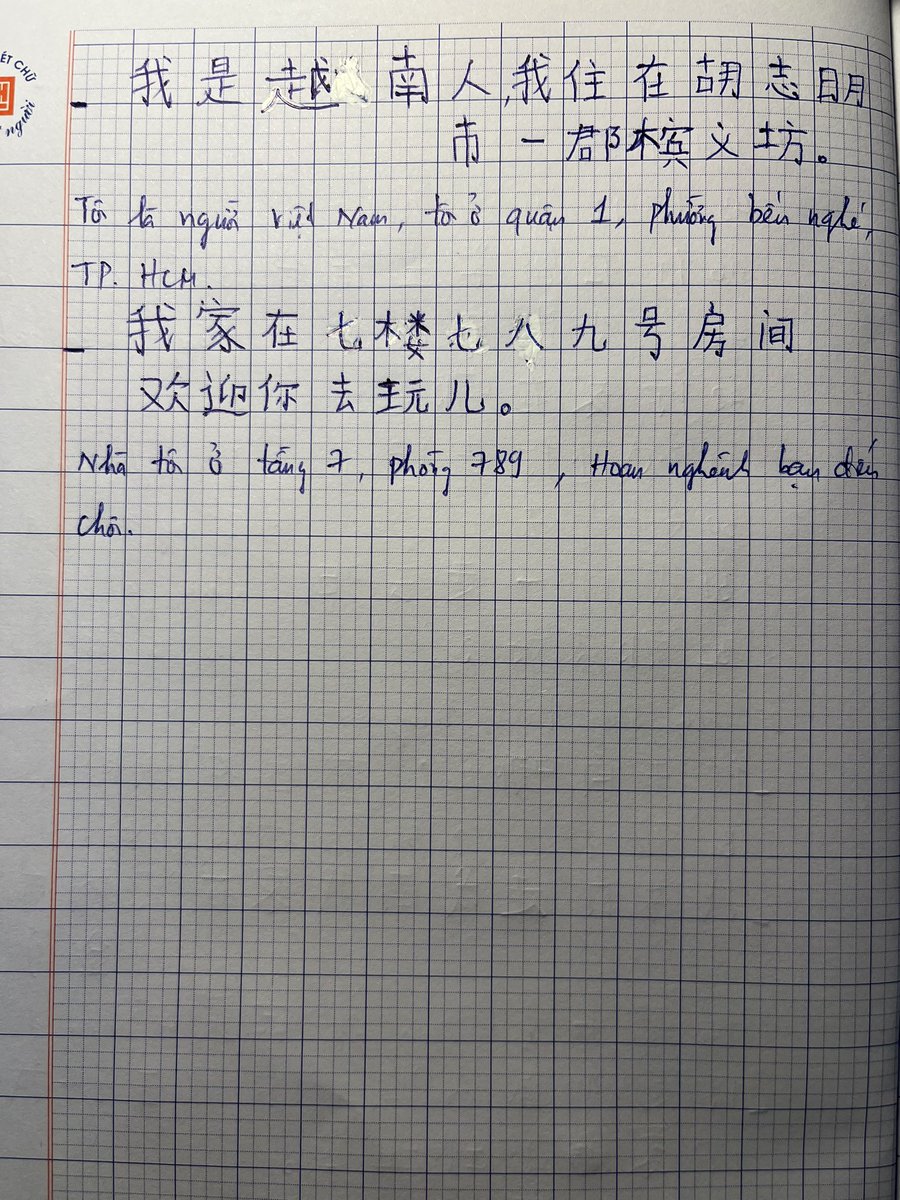 ÉT CHỮ
người
- 我是越南人,我住在胡志明
市一郡槟义坊。
Tôi là người việt Nam, tôi ở quận 1, phường bến nghé,
TP. HCM.
- 我家在七楼七八九号房间
欢迎你去玩儿。
Nhà tôi ở tầng 7, phòng 789, Hoan nghênh bạn đến
chơi.